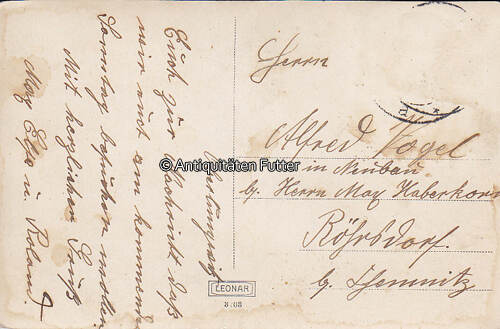 Euch zur Nachricht daß
wir Euch am kommenden
Sonntag besuchen werden
Mit herzlicher Gruß
Max Elsa u Roland
Herrn
Alfred Vogel
in Neubau
b. Herrn Max Haberkorn
Röhrsdorf.
b. Chemnitz
© Antiquitäten Futter
LEONAR
3.03